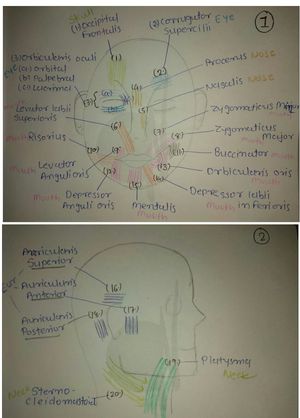 1
Skull
(1) occipital
Frontalis
(2) corrugator EYE
Supercilii
(3) orbicularis oculi
EYE (a) orbital
(b) Palpebral
(c) Lacrimal
Procerus NOSE
Nasalis NOSE
(1)
(2)
(3)
(a)
(b)
(4)
(5)
Levator labii
Superioris
mouth
Zygomaticus Minor
mouth
(6)
(7)
Zygomaticus
Major
mouth
(8)
Risorius
mouth
(9)
(10)
(11)
Buccinator
mouth
Levator
Anguli oris
mouth
(12)
(13)
Orbicularis oris
mouth
(14)
(15)
Depressor
Anguli oris
mouth
Mentalis
mouth
Depressor labii
inferioris
mouth
2
Auricularis
Superior
Auricularis
Anterior
Auricularis
Posterior
(16)
(17)
(18)
(19)
Platysma
Neck
Neck Sterno-
cleidomastoid
(20)